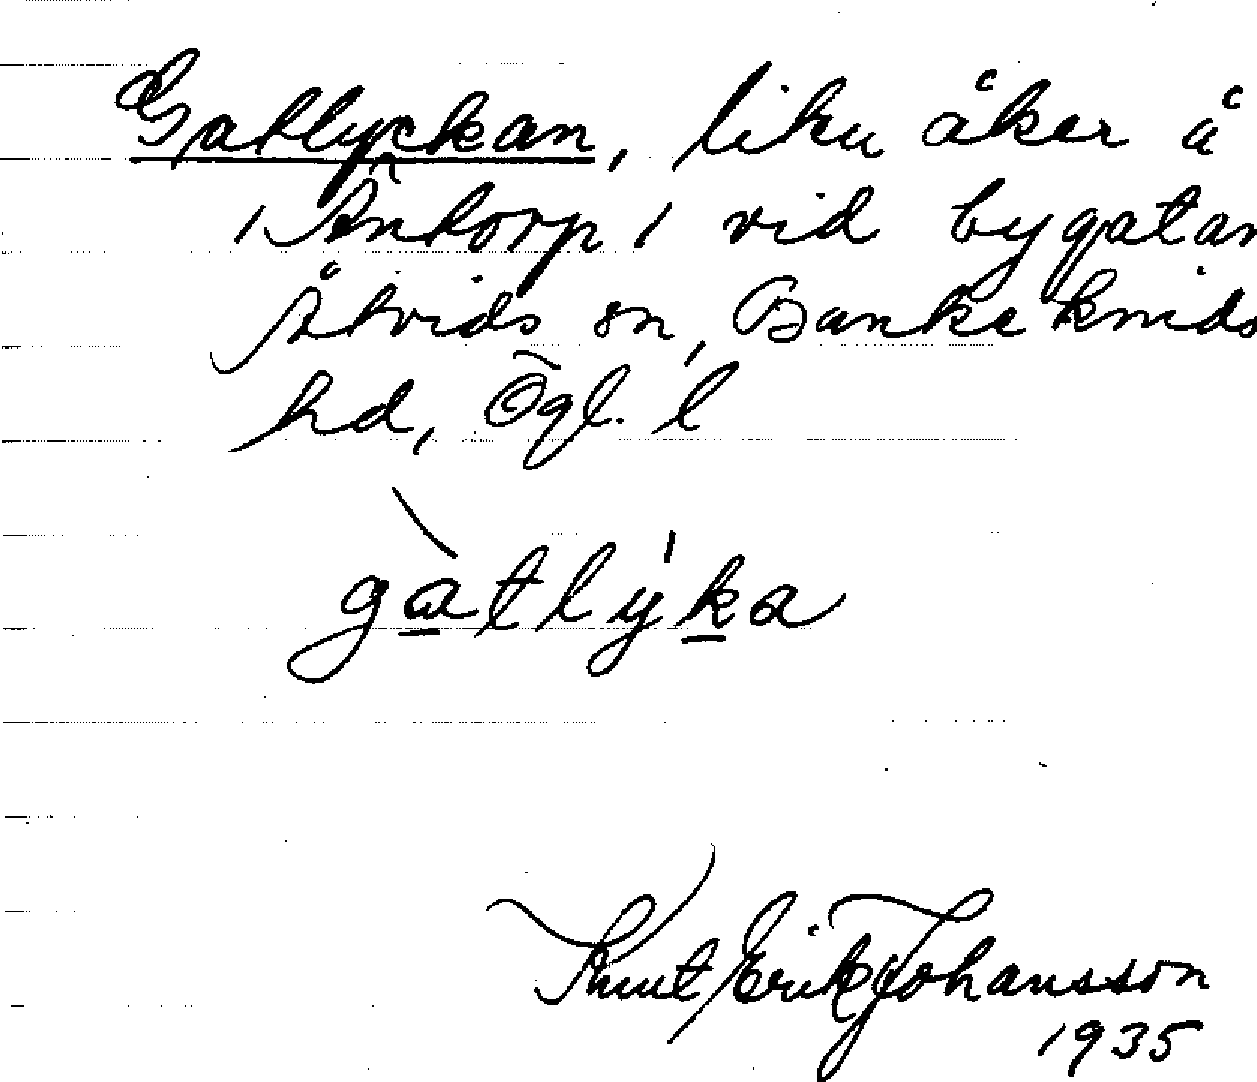 Gatlyckan, liten åker å
/ Äntorp / vid bygatan
Åtvids sn, Bankekinds
hd, Ögl. l
gàtlýka
Knut Erik Johansson
1935